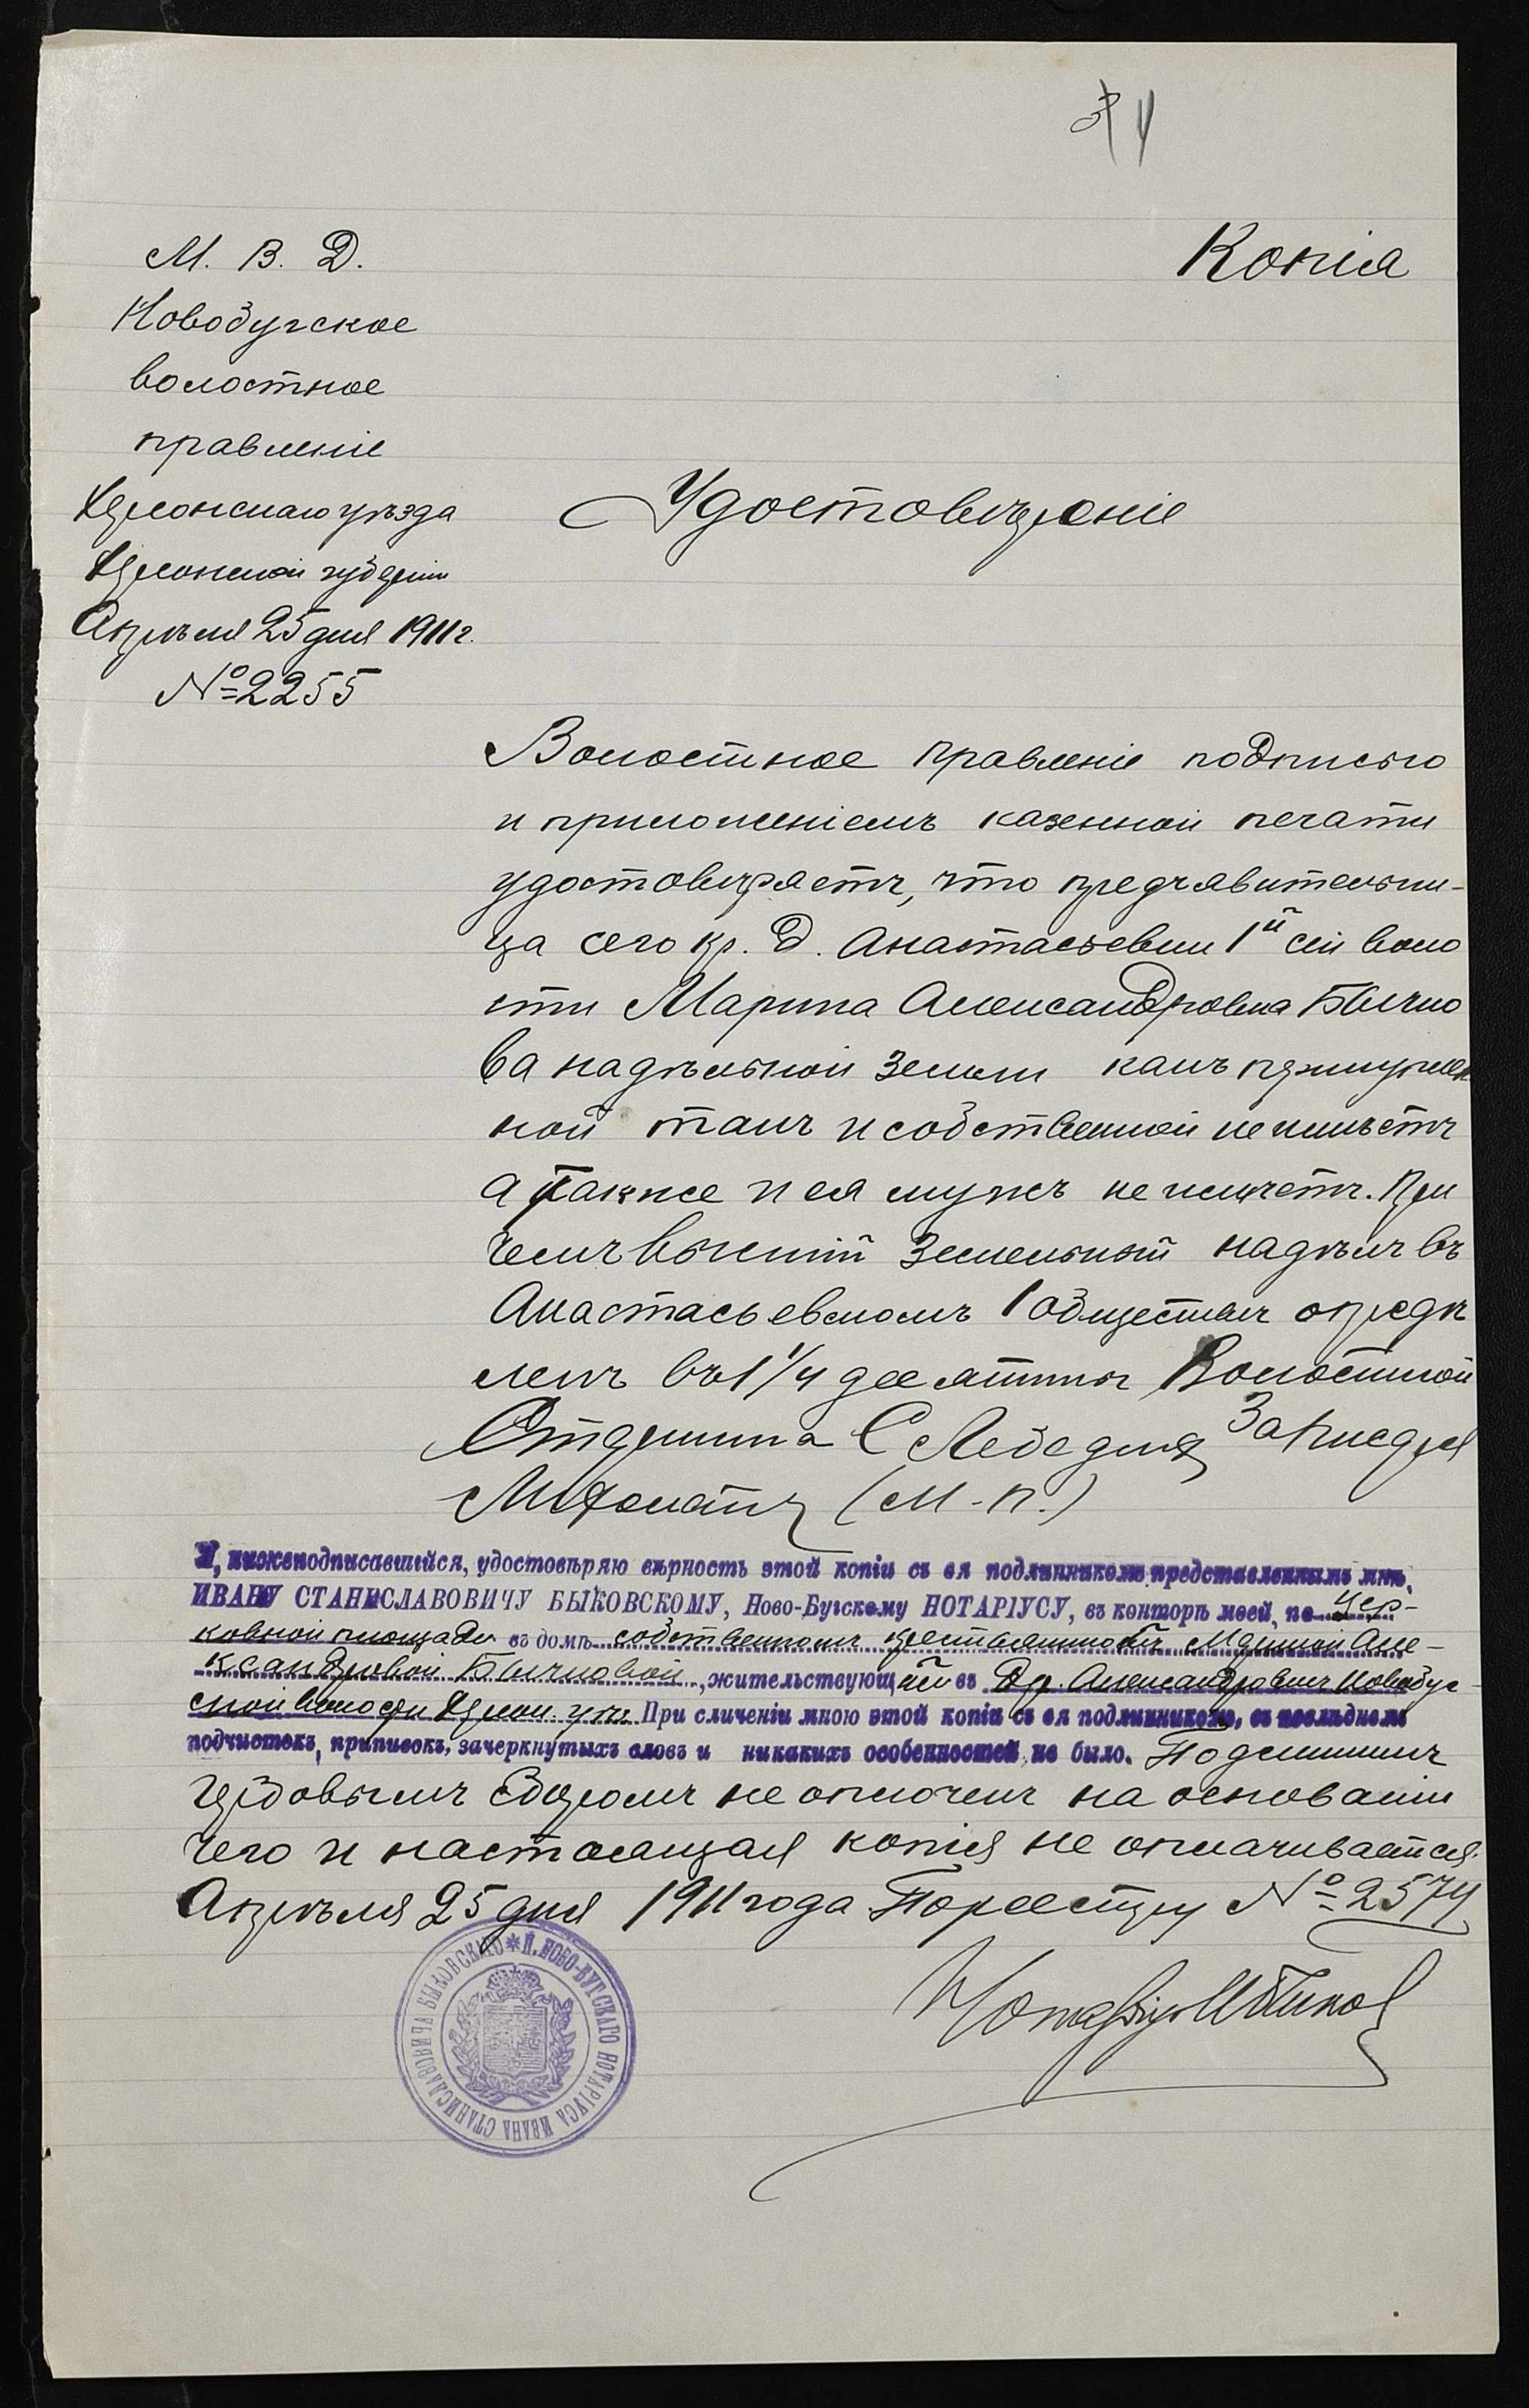 4
Копія
М. В. Д.
Новобугское
волостное
правленіе
Херсонскаго уѣзда
Херсонской губерніи
Апрѣля 25 дня 1911 г.
№ 2255
Удостовѣреніе
Волостное правленіе подписью
и приложеніемъ казенной печати
удостовѣряетъ, что предъявительни-
ца сего кр. д. Анастасьевки 1й сей воло
сти Марина Александровна Бычко
ва надѣльной земли какъ
ной такъ и собственной не имѣетъ
а также и ея мужъ не имѣетъ. При
чемъ высшій земельный надѣлъ въ
Анастасьевскомъ 1 обществѣ опредѣ
ленъ въ 1 1/4 десятины Волостной
Старшина С За Писаря
(М. П.)
Я, нижеподписавшійся, удостовѣряю вѣрность этой копіи съ ея подлинникомъ представленнымъ мнѣ,
ИВАНУ СТАНИСЛАВОВИЧУ БЫКОВСКОМУ, Ново-Бугскому НОТАРІУСУ, въ конторѣ моей, по Цер-
ковной площади въ домѣ собственномъ крестьянкою Мариной Але-
ксандровой Бычковой, жительствующей въ др. Александровкѣ Новобуг-
ской волости Херсон. уѣз. При сличеніи мною этой копіи съ ея подлинникомъ, въ послѣднемъ
подчистокъ, приписокъ, зачеркнутыхъ словъ и никакихъ особенностей не было. Подлинникъ
гербовымъ сборомъ не оплоченъ на основаніи
чего и настоящая копія не оплачивается.
Апрѣля 25 дня 1911 года По реестру № 2574
Нотаріусъ И Быков
* П. НОВО-БУГСКАГО НОТАРІУСА ИВАНА СТАНИСЛАВОВИЧА БЫКОВСКАГО